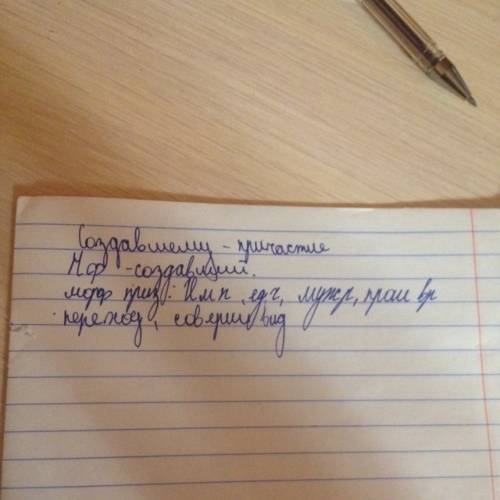 Создавшему - причастие
Н.ф - создавший.
морф приз: И.м п, ед ч, муж р, праш вр
переход, соверш вид